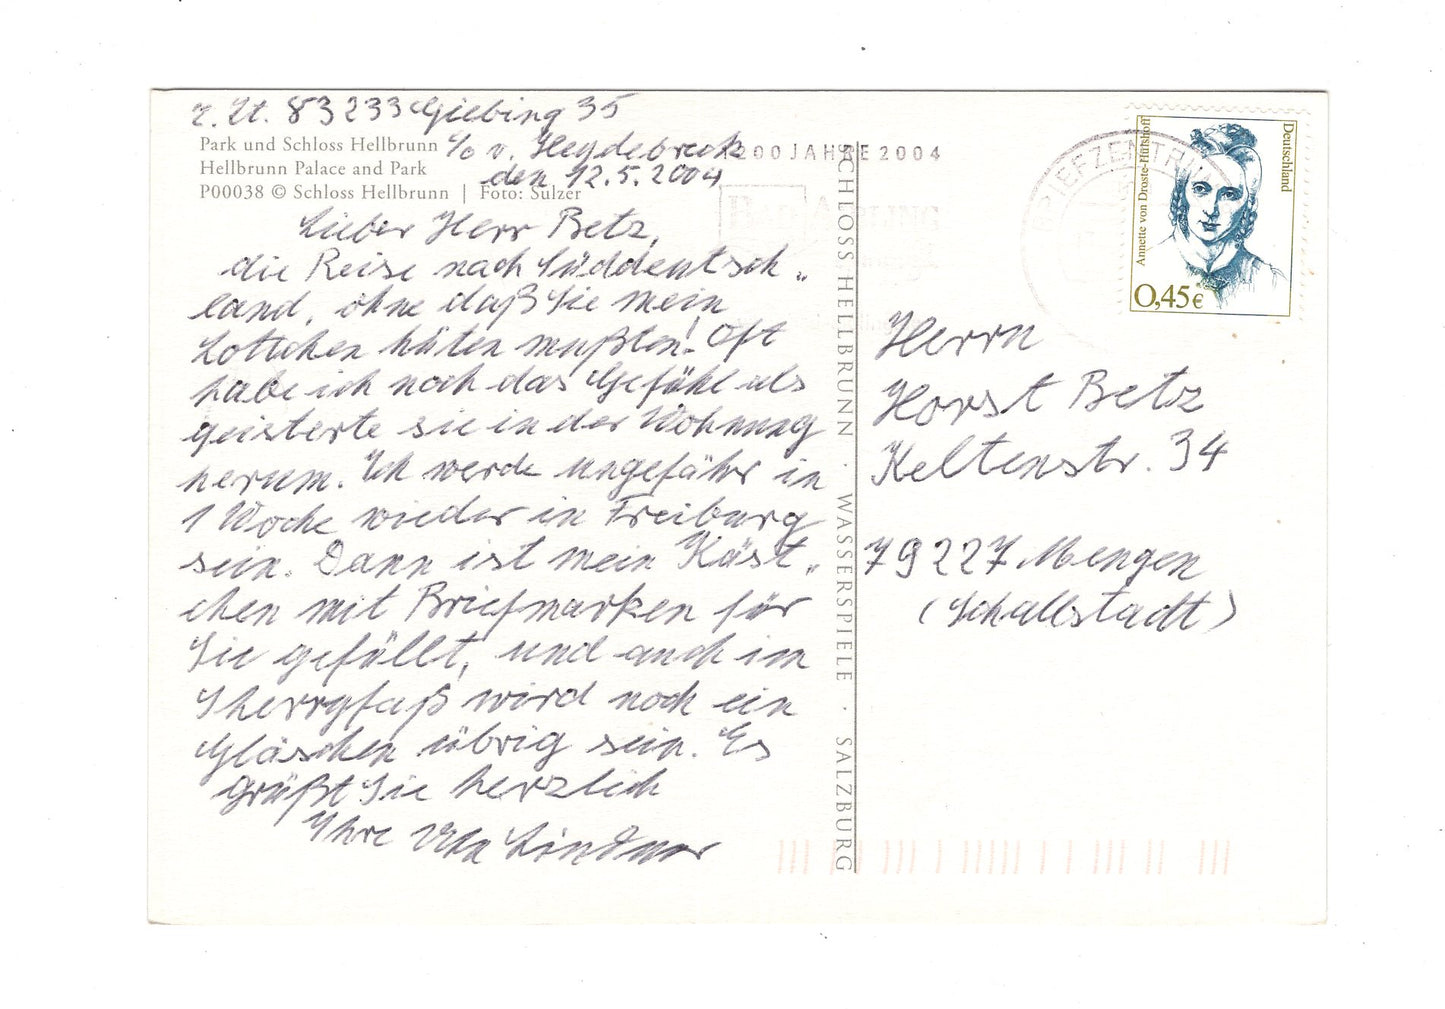 z. Zt. 83233 Giebing 35
c/o v. Heydebreck
den 12.5.2004
Park und Schloss Hellbrunn
Hellbrunn Palace and Park
P00038 © Schloss Hellbrunn | Foto: Sulzer
Lieber Herr Betz,
die Reise nach Süddeutsch„
land, ohne daß Sie mein
Lottchen hüten mußten! Oft
habe ich noch das Gefühl als
geisterte sie in der Wohnung
herum. Ich werde ungefähr in
1 Woche wieder in Freiburg
sein. Dann ist mein Käst„
chen mit Briefmarken für
Sie gefüllt, und auch im
Sherryfaß wird noch ein
Gläschen übrig sein. Es
grüßt Sie herzlich
Ihre Uta Lindner
SCHLOSS HELLBRUNN · WASSERSPIELE · SALZBURG
1200 JAHRE 2004
BAD AIBLING
BRIEFZENTRUM
Annette von Droste-Hülshoff
Deutschland
0,45€
Herrn
Horst Betz
Keltenstr. 34
79227 Mengen
(Schallstadt)